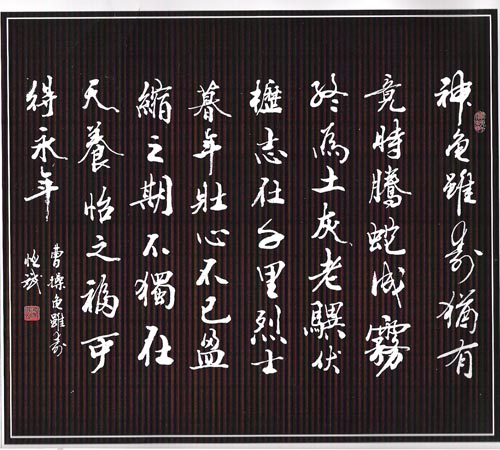 神龜雖壽猶有
竟時騰蛇成霧
終為土灰老驥伏
櫪志在千里烈士
暮年壯心不已盈
縮之期不獨在
天養怡之福可
得永年
曹操龜雖壽